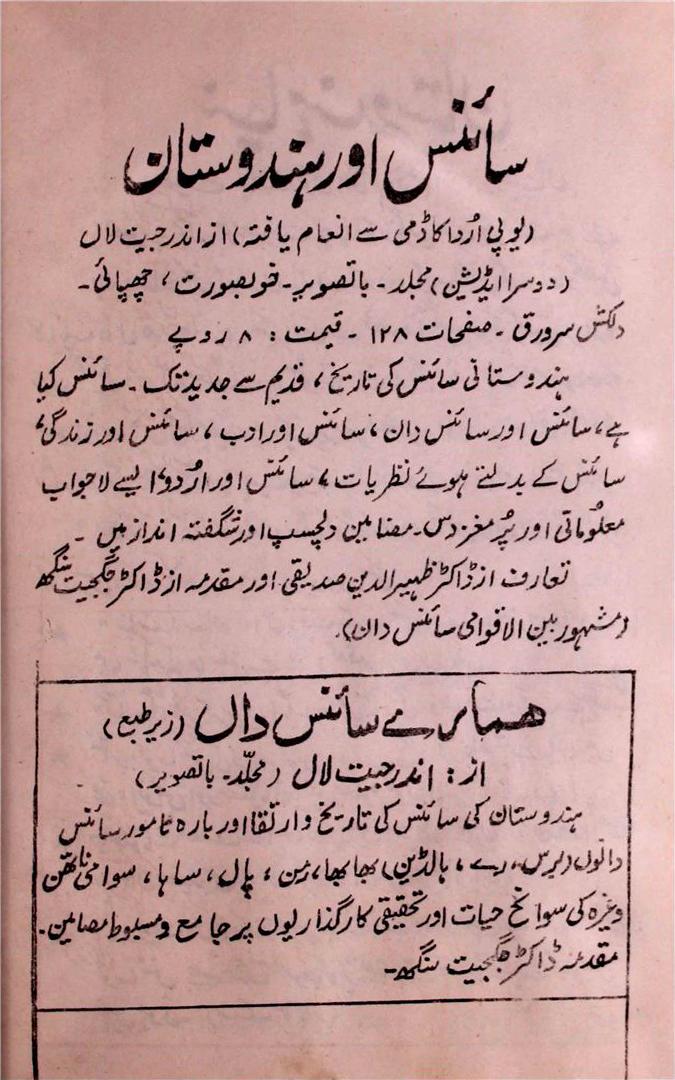 سائنس اور ہندوستان
(یوپی اُردو اکاڈمی سے انعام یافتہ) از اندرجیت لال
(دوسرا ایڈیشن) مجلد۔ باتصویر۔ خوبصورت، چھپائی۔
دلکش سرورق۔ صفحات ۱۲۸۔ قیمت: ۸ روپے
ہندوستانی سائنس کی تاریخ، قدیم سے جدید تک۔ سائنس کیا
ہے، سائنس اور سائنس دان، سائنس اور ادب، سائنس اور زندگی،
سائنس کے بدلتے ہوئے نظریات، سائنس اور اُردو، ایسے لاجواب
معلوماتی اور پُر مغز دس۔ مضامین دلچسپ اور شگفتہ انداز میں۔
تعارف از ڈاکٹر ظہیر الدین صدیقی اور مقدمہ از ڈاکٹر جگجیت سنگھ
(مشہور بین الاقوامی سائنس دان)۔
ہمارے سائنس داں (زیر طبع)
از: اندرجیت لال (مجلّد۔ باتصویر)
ہندوستان کی سائنس کی تاریخ و ارتقا اور بارہ نامور سائنس
دانوں (بوس، رے، ہالڈین) بھابھا، رمن، پال، ساہا، سوامی ناتھن
وغیرہ کی سوانح حیات اور تحقیقی کارگذاریوں پر جامع و مبسوط مضامین۔
مقدمہ ڈاکٹر جگجیت سنگھ۔